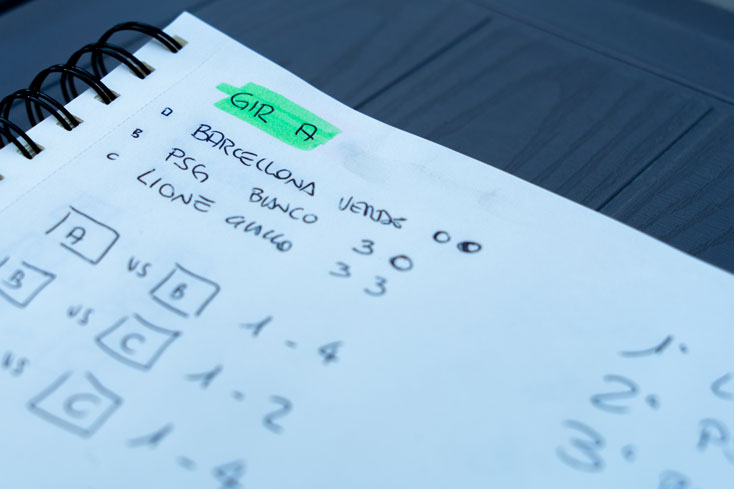 GIR A
A BARCELLONA VERDE 0 0
B PSG BIANCO 3 0
C LIONE GIALLO 3 3
A VS B 1 - 4
B VS C 1 - 2
VS C 1 - 4
1.
2.
3.